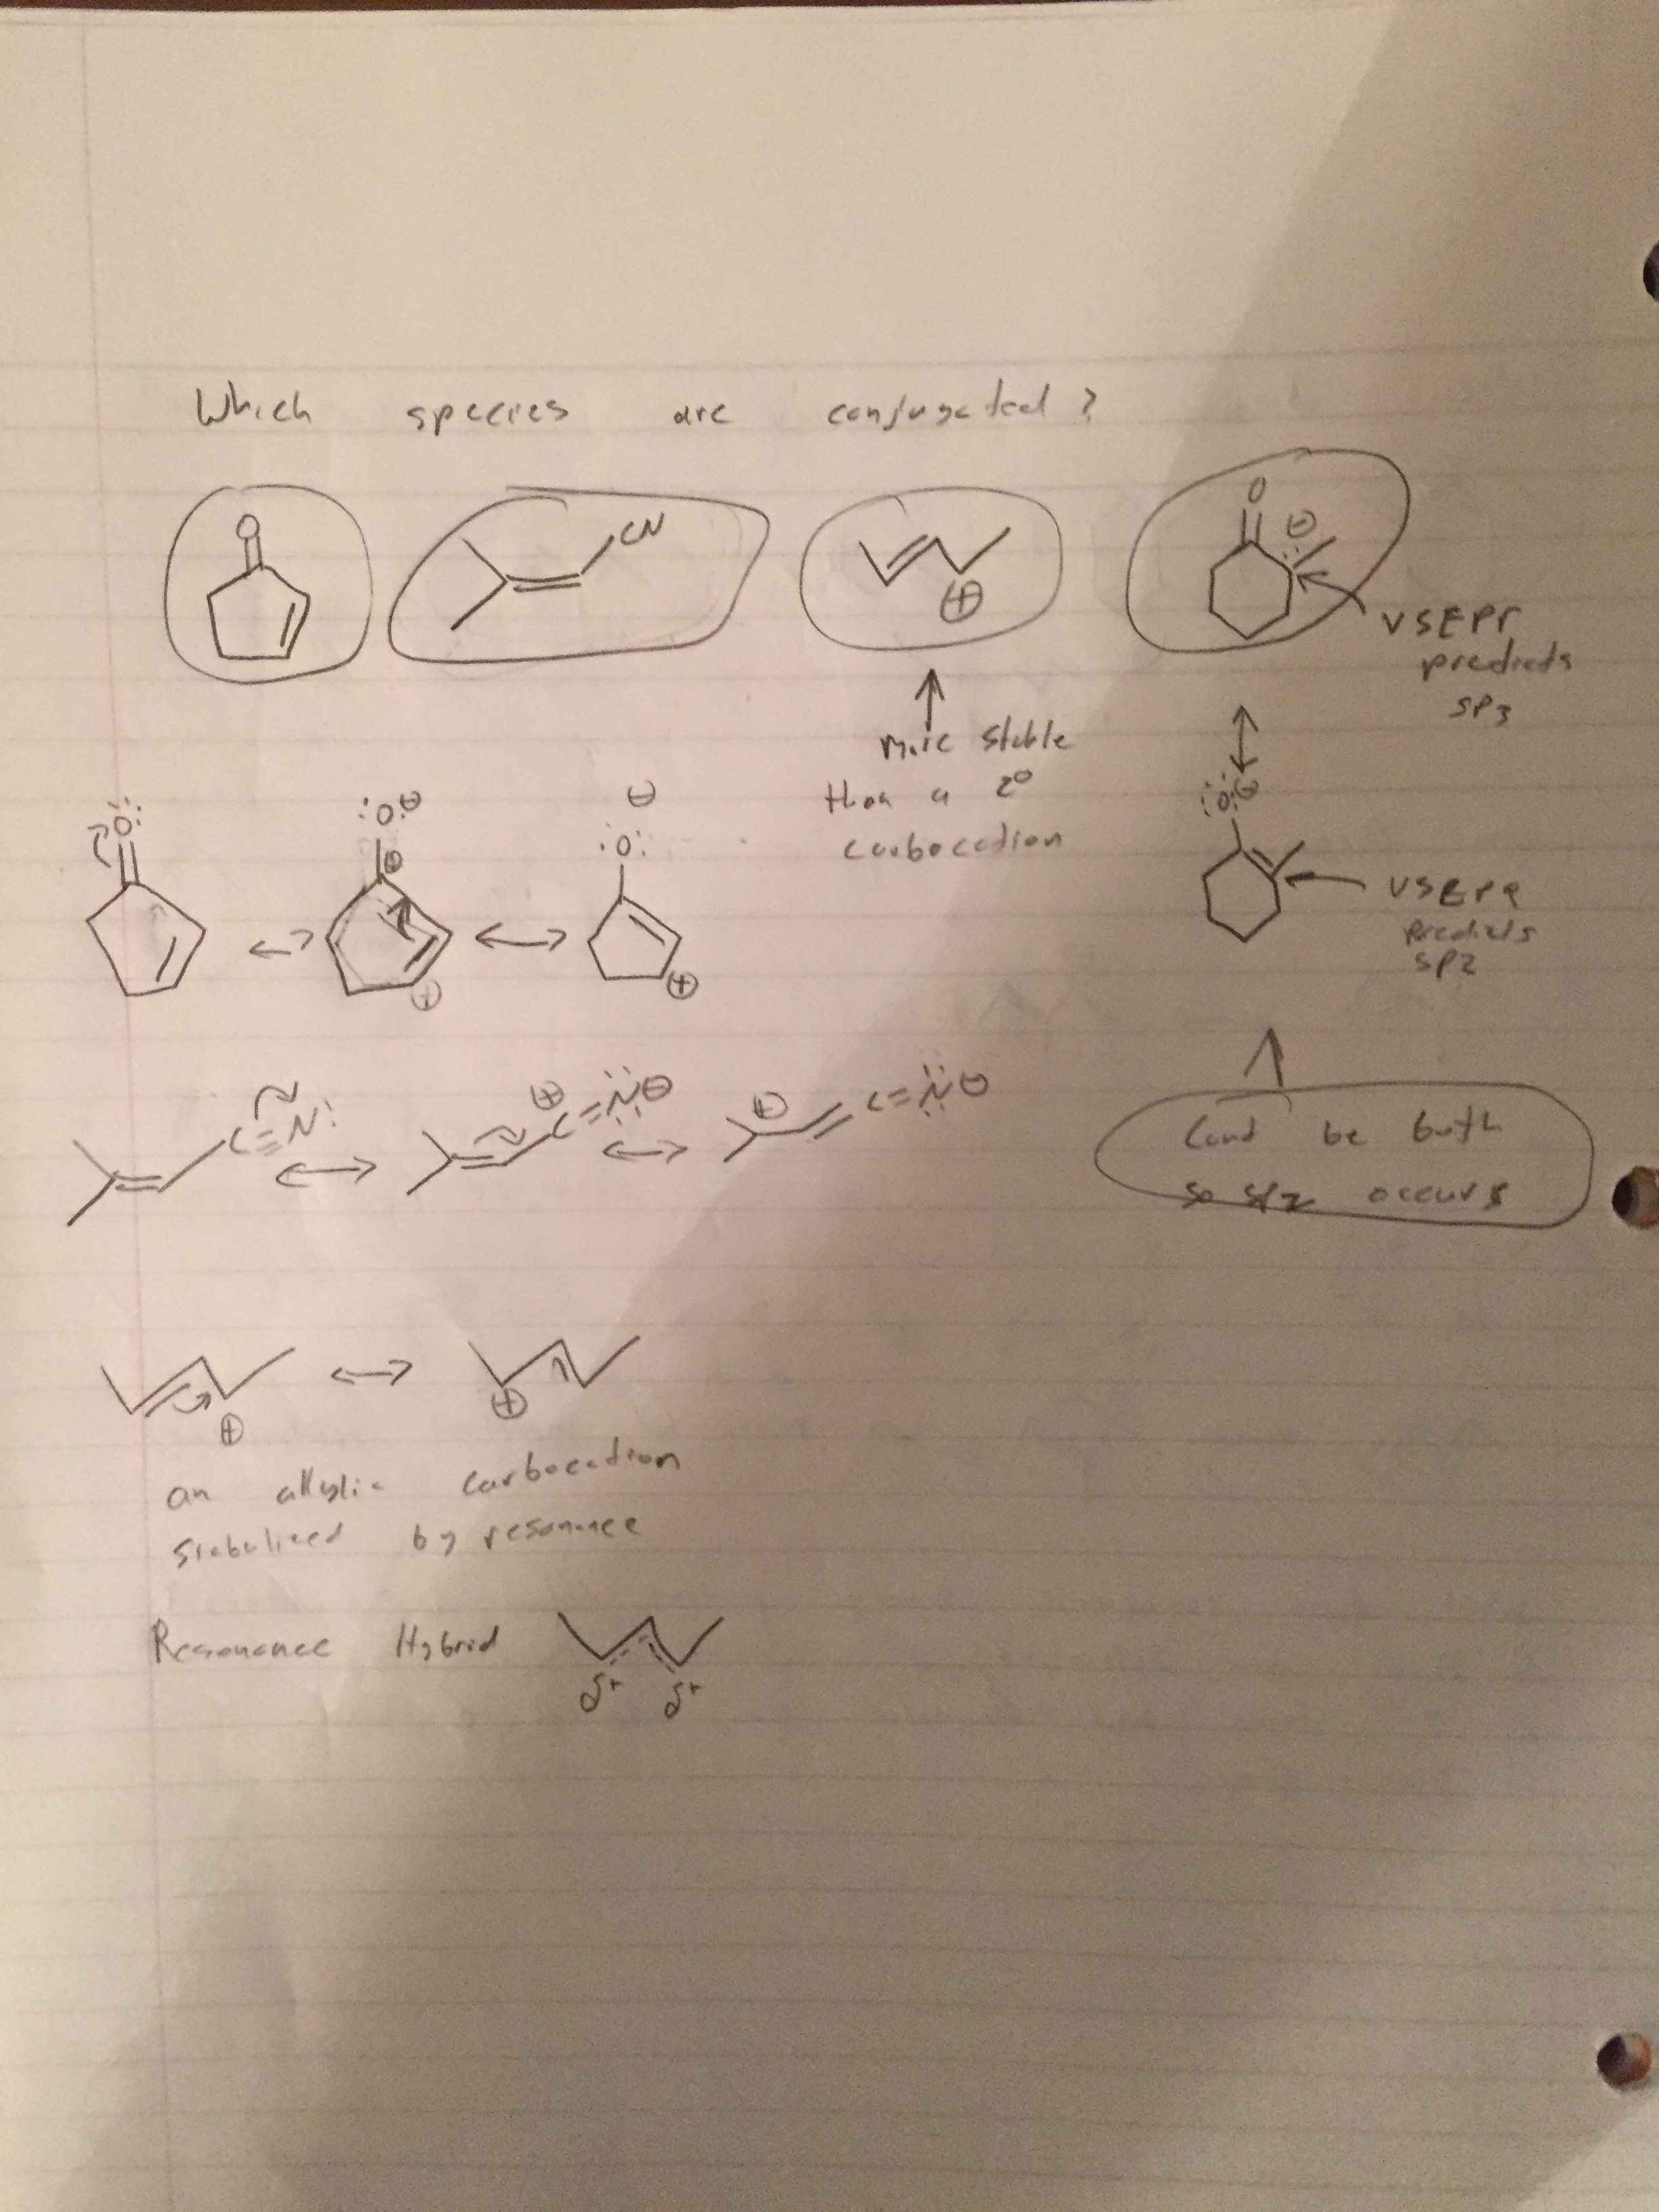 Which species are conjugated?
O
CN
⊕
O
⊖
:
VSEPR
predicts
SP3
more stable
than a 2°
carbocation
:Ö:
:O:⊖
⊕
⊕
⊖
:O:
⊕
:O:⊖
VSEPR
predicts
SP2
C≡N:
⊕
C=N⊖
⊕
C=N⊖
be both
so SP2 occurs
⊕
⊕
an allylic carbocation
by resonance
Resonance Hybrid
δ+ δ+